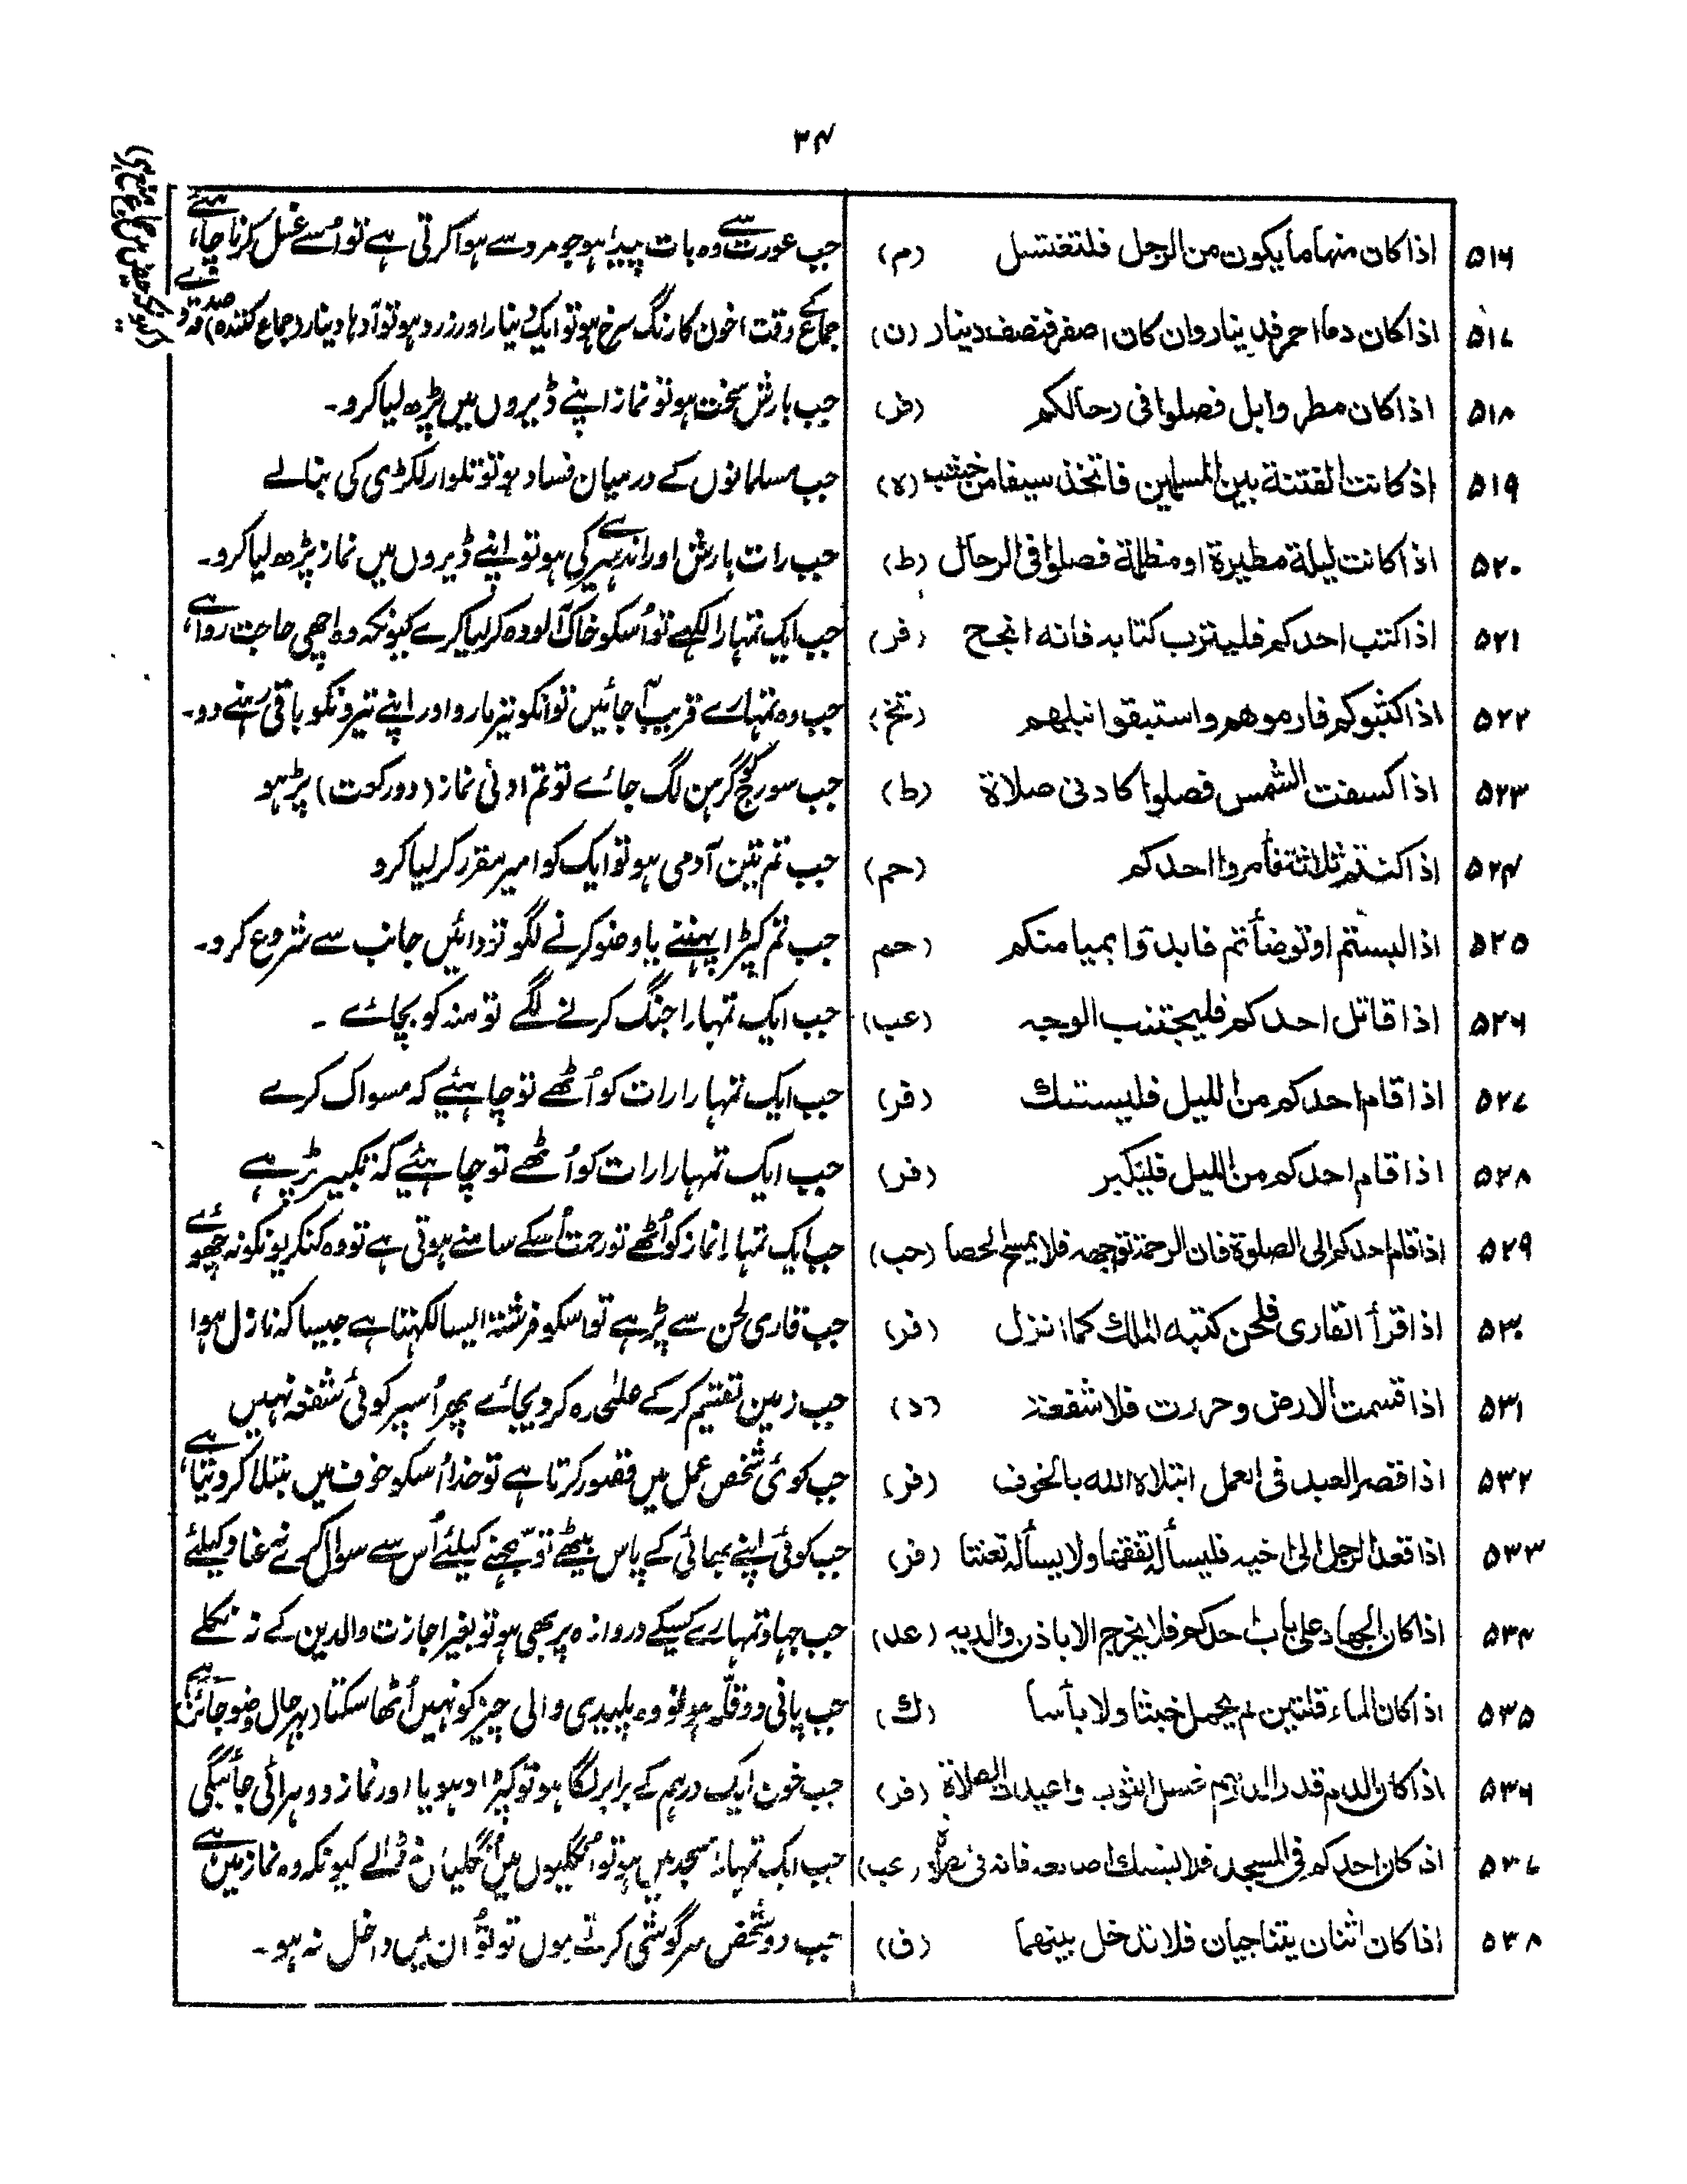 ۳۴
۵۱۶ اذا کان منها ما یکون من الرجل فلتغتسل (م) جب عورت سے وہ بات پیدا ہو جو مرد سے ہوا کرتی ہے تو اُسے غسل کرنا چاہئے
۵۱۷ اذا کان دما احمر فدینار وان کان اصفر فنصف دینار (ن) جماع کے وقت اخون کا رنگ سرخ ہو تو ایک دینار اور زرد ہو تو آدہا دینار (جماع کنندہ) صدقہ دے
۵۱۸ اذا کان مطر وابل فصلوا فی رحالکم (ط) جب بارش سخت ہو تو نماز اپنے ڈیروں میں پڑھ لیا کرو۔
۵۱۹ اذ کانت الفتنة بین المسلمین فاتخذ سیفا من خشب (ه) جب مسلمانوں کے درمیان فساد ہو تو تلوار لکڑی کی بنالے
۵۲۰ اذا کانت لیلة مطیرة او مظلمة فصلوا فی الرحال (ط) جب رات بارش اور اندہیرے کی ہو تو اپنے ڈیروں میں نماز پڑھ لیا کرو۔
۵۲۱ اذا کتب احدکم فلیترب کتابه فانه انجح (فر) جب ایک تمہارا لکہے تو اُسکو خاک آلودہ کر لیا کرے کیونکہ وہ اچھی حاجت روا ہے
۵۲۲ اذا کثبوکم فارموهم واستبقوا نبلهم (تخ) جب وہ تمہارے قریب آجائیں تو انکو تیر مارو اور اپنے تیرونکو باقی رہنے دو۔
۵۲۳ اذا کسفت الشمس فصلوا کادنی صلاة (ط) جب سورج کو گرہن لگ جائے تو تم ادنی نماز (دو رکوت) پڑہو
۵۲۴ اذا کنتم ثلاثة فأمروا احدکم (حم) جب تم تین آدمی ہو تو ایک کو امیر مقرر کر لیا کرو
۵۲۵ اذا لبستم او توضأتم فابدؤا بمیامنکم (حم جب تم کپڑا پہننے یا وضو کرنے لگو تو دائیں جانب سے شروع کرو۔
۵۲۶ اذا قاتل احدکم فلیجتنب الوجه (عب) جب ایک تمہارا جنگ کرنے لگے تو منہ کو بچائے ۔
۵۲۷ اذا قام احدکم من اللیل فلیستنك (فر) جب ایک تمہارا رات کو اُٹھے تو چاہئیے کہ مسواک کرے
۵۲۸ اذا قام احدکم من اللیل فلیکبر (فر) جب ایک تمہارا رات کو اُٹھے تو چاہئیے کہ تکبیر پڑہے
۵۲۹ اذا قام احدکم الی الصلوة فان الرحمة تواجهه فلا یمسح الحصا (حب) جب ایک تمہارا نماز کو اُٹھے تو رحمت اُسکے سامنے ہوتی ہے تو وہ کنکریونکو نہ چھوئے
۵۳۰ اذا قرأ القاری فلحن کتبه الملك کما انزل (فر) جب قاری لحن سے پڑہے تو اسکو فرشتہ ایسا لکہتا ہے جیسا کہ نازل ہوا
۵۳۱ اذا قسمت الارض وحررت فلا شفعة (د) جب زمین تقسیم کرکے علیٰحدہ کر دیجائے پھر اُسپر کوئی شفعہ نہیں
۵۳۲ اذا قصر العبد فی العمل ابتلاه الله بالخوف (فر) جب کوئی شخص عمل میں قصور کرتا ہے تو خدا اُسکو خوف میں مبتلا کر دیتا ہے
۵۳۳ اذا قعد الرجل الی اخیه فلیسأله تفقها ولا یسأله تعنتا (فر) جب کوئی اپنے بھائی کے پاس بیٹھے تو سمجہنے کیلئے اُس سے سوال کرے نہ عناد کیلئے
۵۳۴ اذا کان الجهاد علی باب احدکم فلا یخرج الا باذن والدیه (عد) جب جہاد تمہارے کسیکے دروازہ پر بھی ہو تو بغیر اجازت والدین کے نہ نکلے
۵۳۵ اذا کان الماء قلتین لم یحمل خبثا ولا بأسا (ك) جب پانی دو قلّہ ہو تو وہ پلیدی والی چیز کو نہیں اُٹھا سکتا (بہرحال وضو جائز ہے)
۵۳۶ اذا کان الدم قدر الدرهم غسل الثوب واعیدت الصلاة (فر) جب خون ایک درہم کے برابر لگا ہو تو کپڑا دہویا اور نماز دوہرائی جائیگی
۵۳۷ اذ کان احدکم فی المسجد فلا یشبك اصابعه فانه فی صلوة (عب) جب ایک تمہارا مسجد میں ہو تو اُنگلیوں میں اُنگلیاں نہ ڈالے کیونکہ وہ نماز میں ہے
۵۳۸ اذا کان اثنان یتناجیان فلا تدخل بینهما (ق) جب دو شخص سرگوشی کرتے ہوں تو تُو ان میں داخل نہ ہو۔